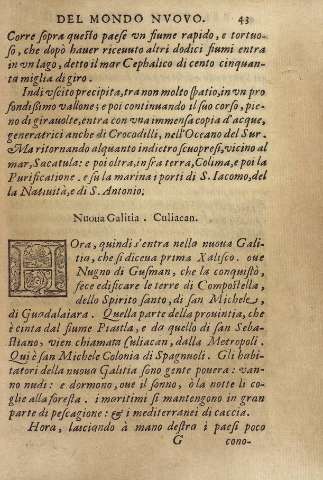 DEL MONDO NVOVO. 43
Corre sopra questo paese vn fiume rapido, e tortuo-
so, che dopò hauer riceuuto altri dodici fiumi entra
in vn lago, detto il mar Cephalico di cento cinquan-
ta miglia di giro.
Indi vscito precipita, tra non molto spatio, in vn pro
fondissimo vallone; e poi continuando il suo corso, pie-
no di girauolte, entra con vna immensa copia d'acque,
generatrici anche di Crocodilli, nell'Oceano del Sur.
Ma ritornando alquanto indietro scuopresi, vicino al
mar, Sacatula: e poi oltra, infra terra, Colima, e poi la
Purificatione. e su la marina i porti di S. Iacomo, del
la Natiuità, e di S. Antonio.
Nuoua Galitia. Culiacan.
HOra, quindi s'entra nella nuoua Gali-
tia, che si diceua prima Xalisco. oue
Nugno di Gusman, che la conquistò,
fece edificare le terre di Compostella,
dello Spirito santo, di san Michele,
di Guadalaiara. Quella parte della prouintia, che
è cinta dal fiume Piastla, e da quello di san Seba-
stiano, vien chiamata Culiacan, dalla Metropoli.
Qui è san Michele Colonia di Spagnuoli. Gli habi-
tatori della nuoua Galitia sono gente pouera: van-
no nudi: e dormono, oue il sonno, ò la notte li co-
glie alla foresta. i maritimi si mantengono in gran
parte di pescagione: & i mediterranei di caccia.
Hora, lasciando à mano destra i paesi poco
G cono-